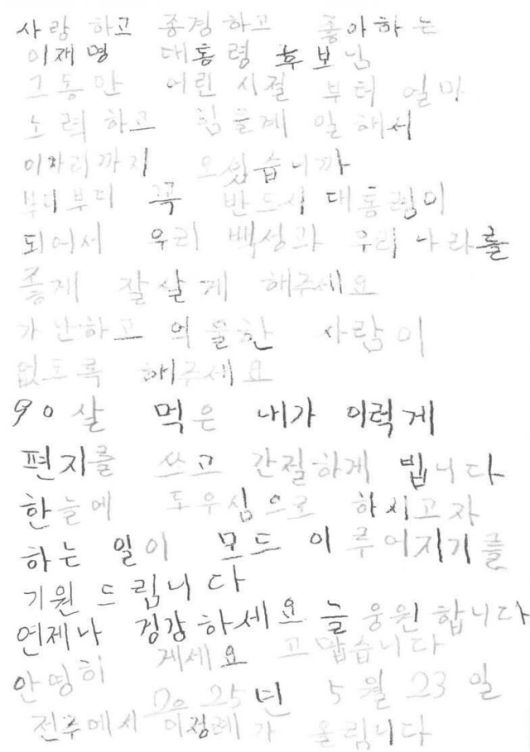 사랑 하고 존경하고 좋아하는
이재명 대통령 후보님
그동안 어린 시절 부터 얼마
노력하고 힘들게 일해서
이자리까지 오셨습니까
부디부디 꼭 반드시 대통령이
되어서 우리 백성과 우리 나라를
좋게 잘살게 해주세요
가난하고 억울한 사람이
없도록 해주세요
90살 먹은 내가 이렇게
편지를 쓰고 간절하게 빕니다
한늘에 도우심으로 하시고자
하는 일이 모드 이루어지기를
기원 드립니다
언제나 겅강하세요 늘 웅원합니다
안영히 게세요 고맙습니다
2025년 5월 23일
전주에서 이정례가 올립니다